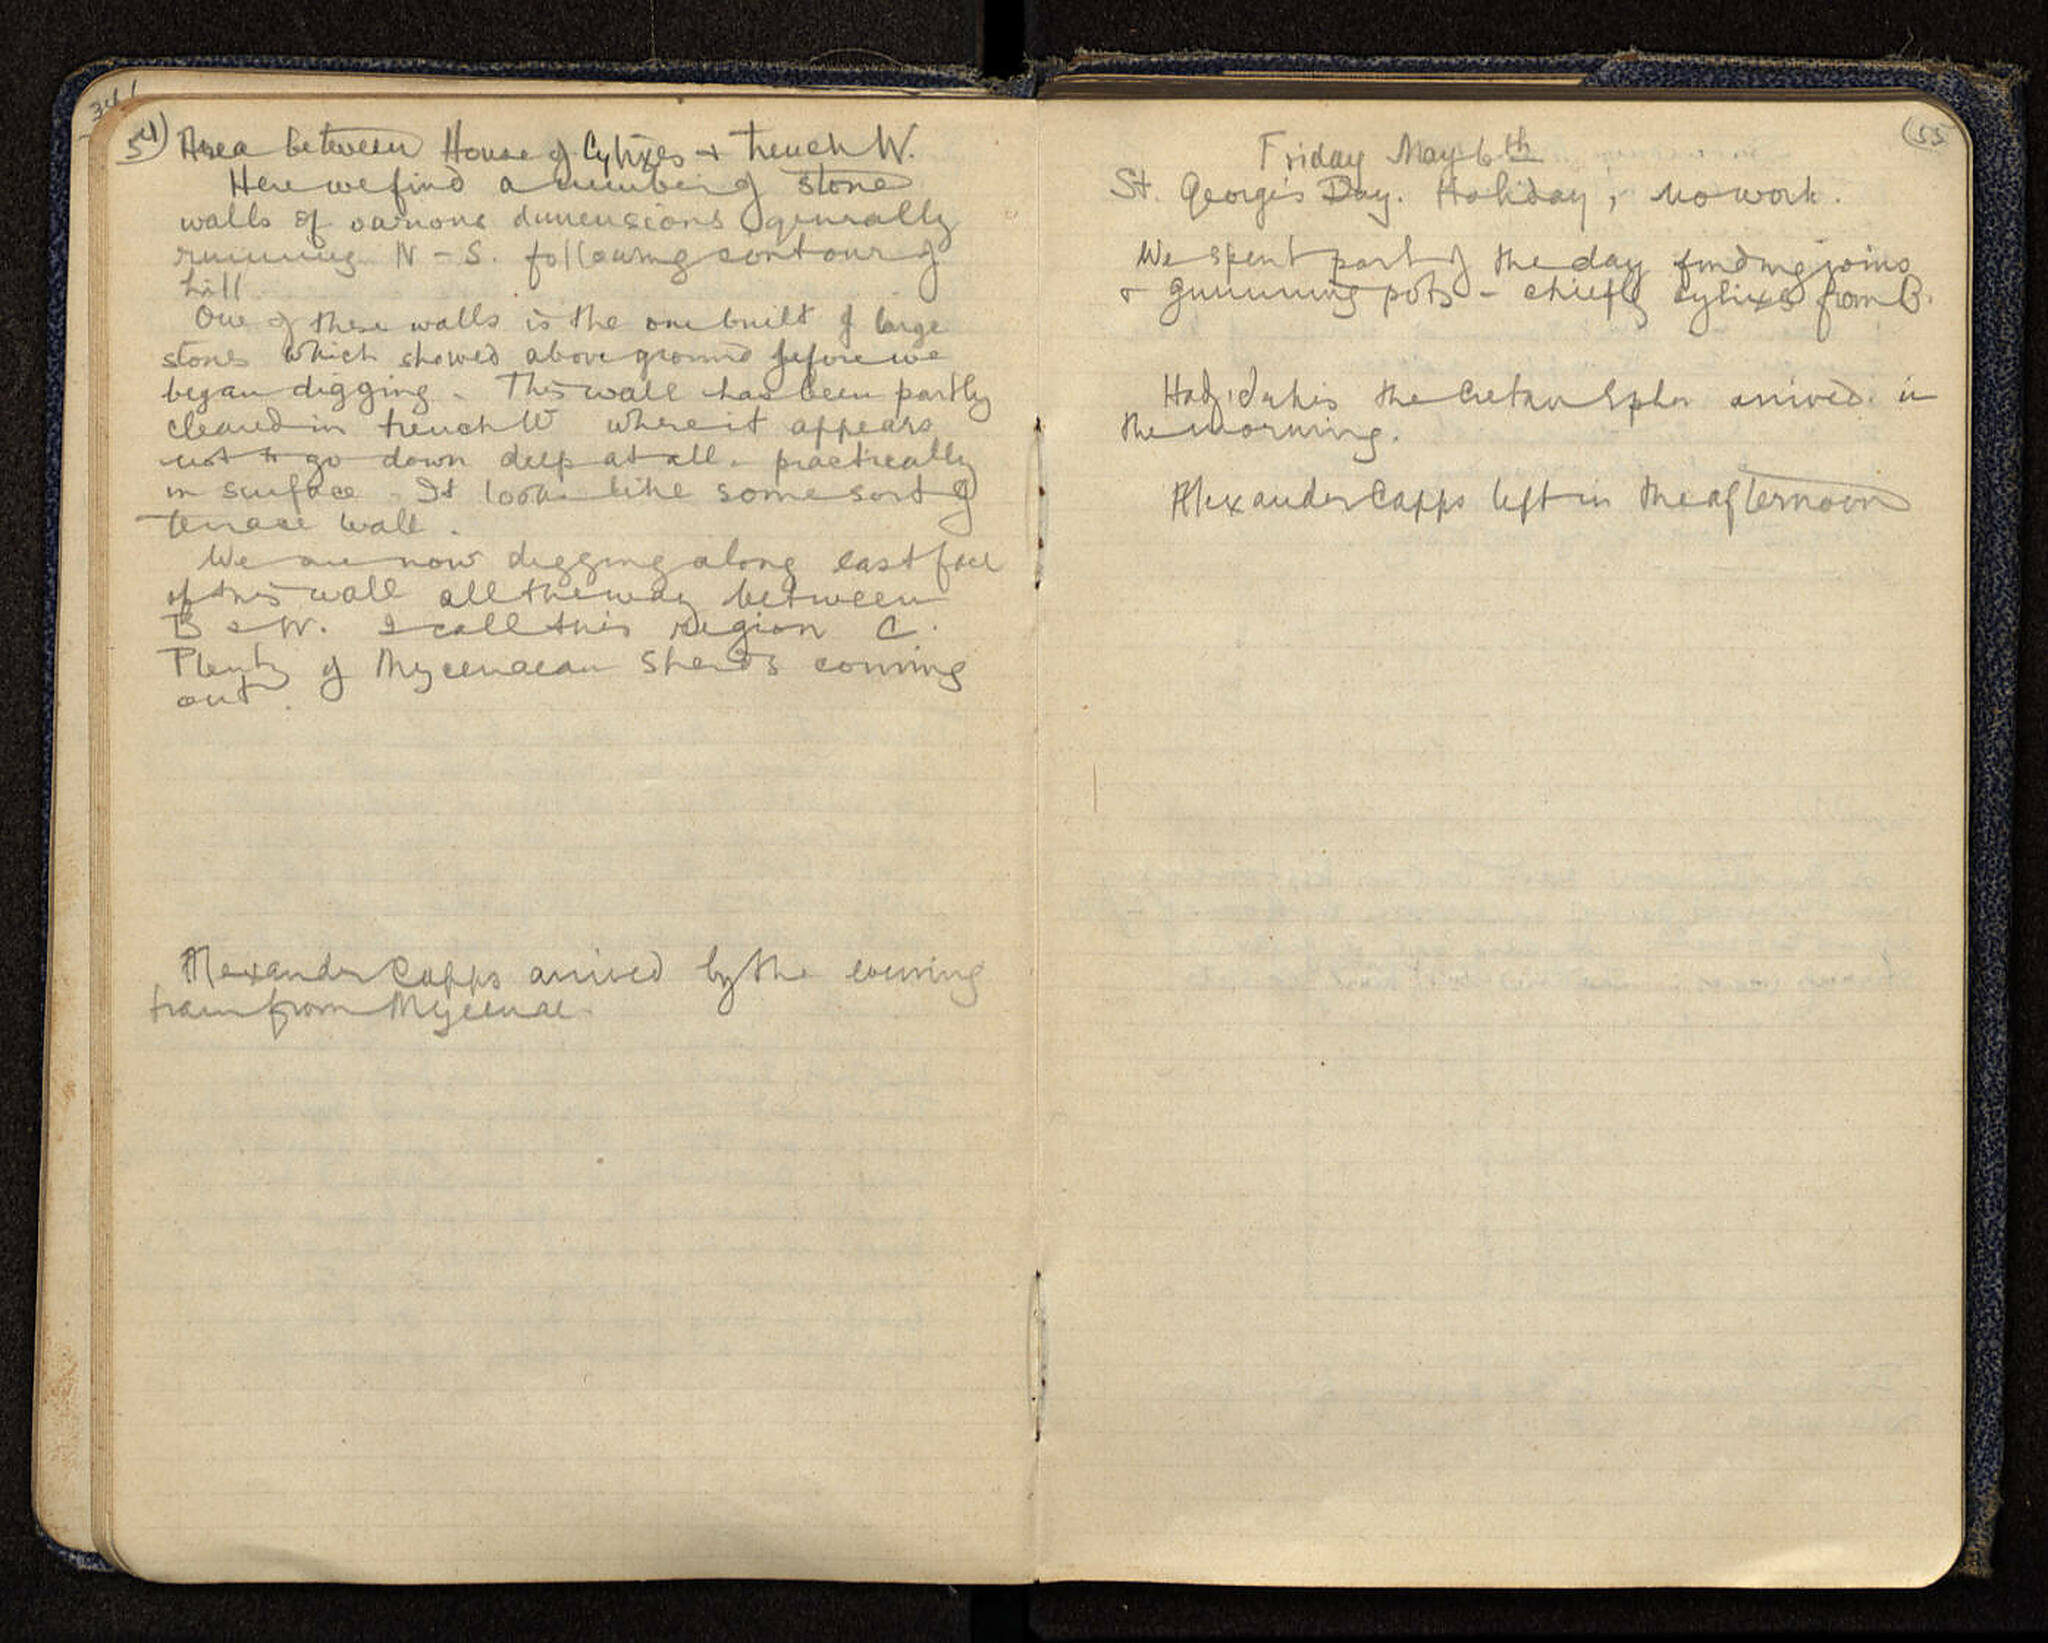 54)
Area between House of Cylixes + Trench W.
Here we find a number of stone
walls of various dimensions generally
running N - S. following contour of
hill
One of these walls is the one built of large
stones which showed above ground before we
began digging. This wall has been partly
cleared in trench W where it appears
not to go down deep at all - practically
in surface - It looks like some sort of
terrace wall.
We are now digging along east face
of this wall all the way between
B & W. I call this region C.
Plenty of Mycenaean Sherds coming
out.
Alexander Capps arrived by the evening
train from Mycenae.
(55
Friday May 6th
St. George's Day. Holiday; no work.
We spent part of the day finding joins
+ gumming pots - chiefly cylixes from B.
Hadjidakis the Cretan Ephor arrived in
the morning.
Alexander Capps left in the afternoon